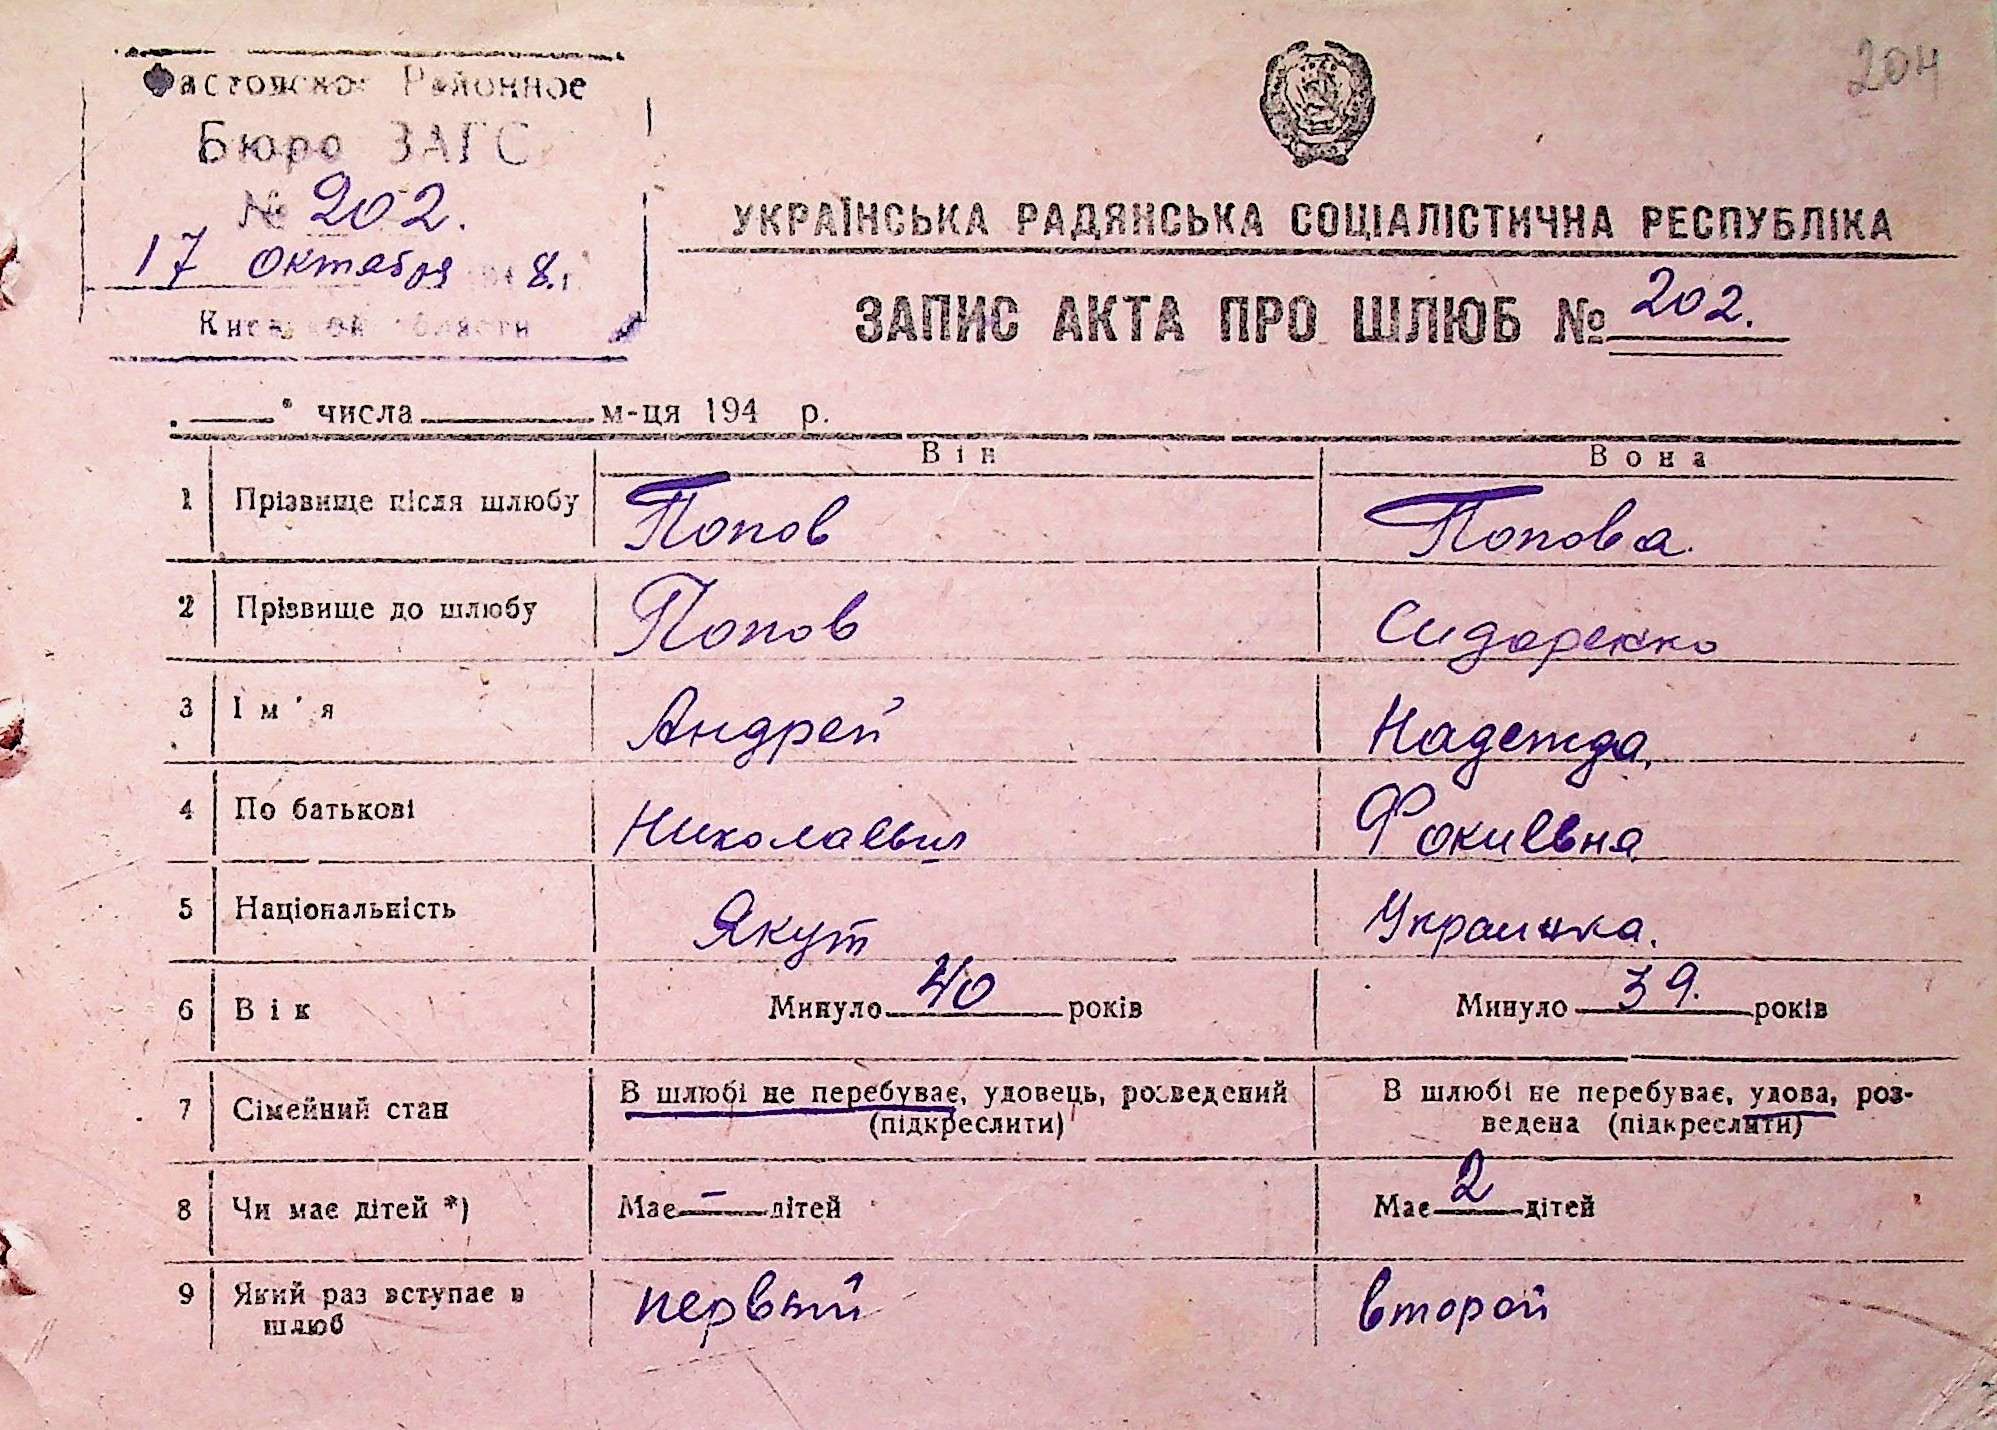 204
Фастовское Районное
Бюро ЗАГС
№ 202.
17 октября 1948 г.
Киевской области
УКРАЇНСЬКА РАДЯНСЬКА СОЦІАЛІСТИЧНА РЕСПУБЛІКА
ЗАПИС АКТА ПРО ШЛЮБ № 202.
" числа м-ця 194 р.
Він Вона
1 Прізвище після шлюбу Попов Попова.
2 Прізвище до шлюбу Попов Сидоренко
3 Ім'я Андрей Надежда,
4 По батькові Николаевич Фокиевна
5 Національність Якут Украинка.
6 Вік Минуло 40 років Минуло 39. років
7 Сімейний стан В шлюбі не перебуває, удовець, розведений (підкреслити) В шлюбі не перебуває, удова, роз-
ведена (підкреслити)
8 Чи має дітей *) Має — дітей Має 2 дітей
9 Який раз вступає в первый второй
шлюб